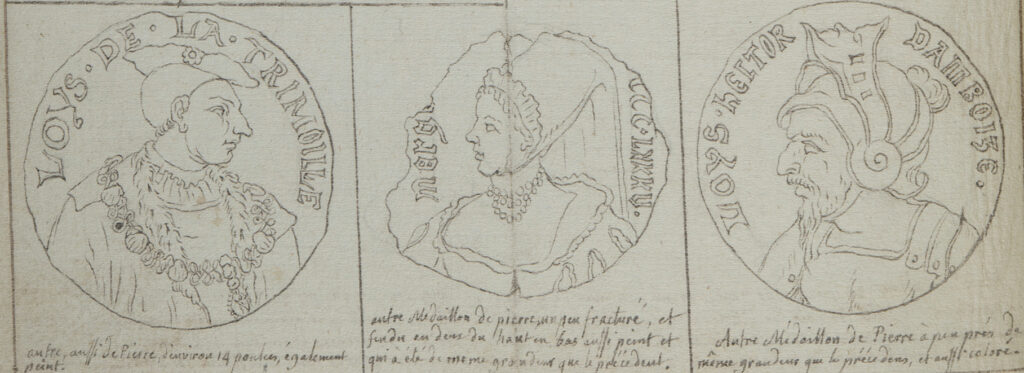 LOYS · DE · LA · TRIMOILLE
autre, aussi de Pierre, d'environ 14 pouces, également
peint.
CCC · LXXXV.
autre Médaillon de pierre, un peu fracturé, et
fendu en deux du haut en bas aussi peint et
qui a été de même grandeur que le précédent.
LIOYS · HEITOR DAMBOIZE ·
Autre Médaillon de Pierre à peu près de
même grandeur que le précédens, et aussi coloré.